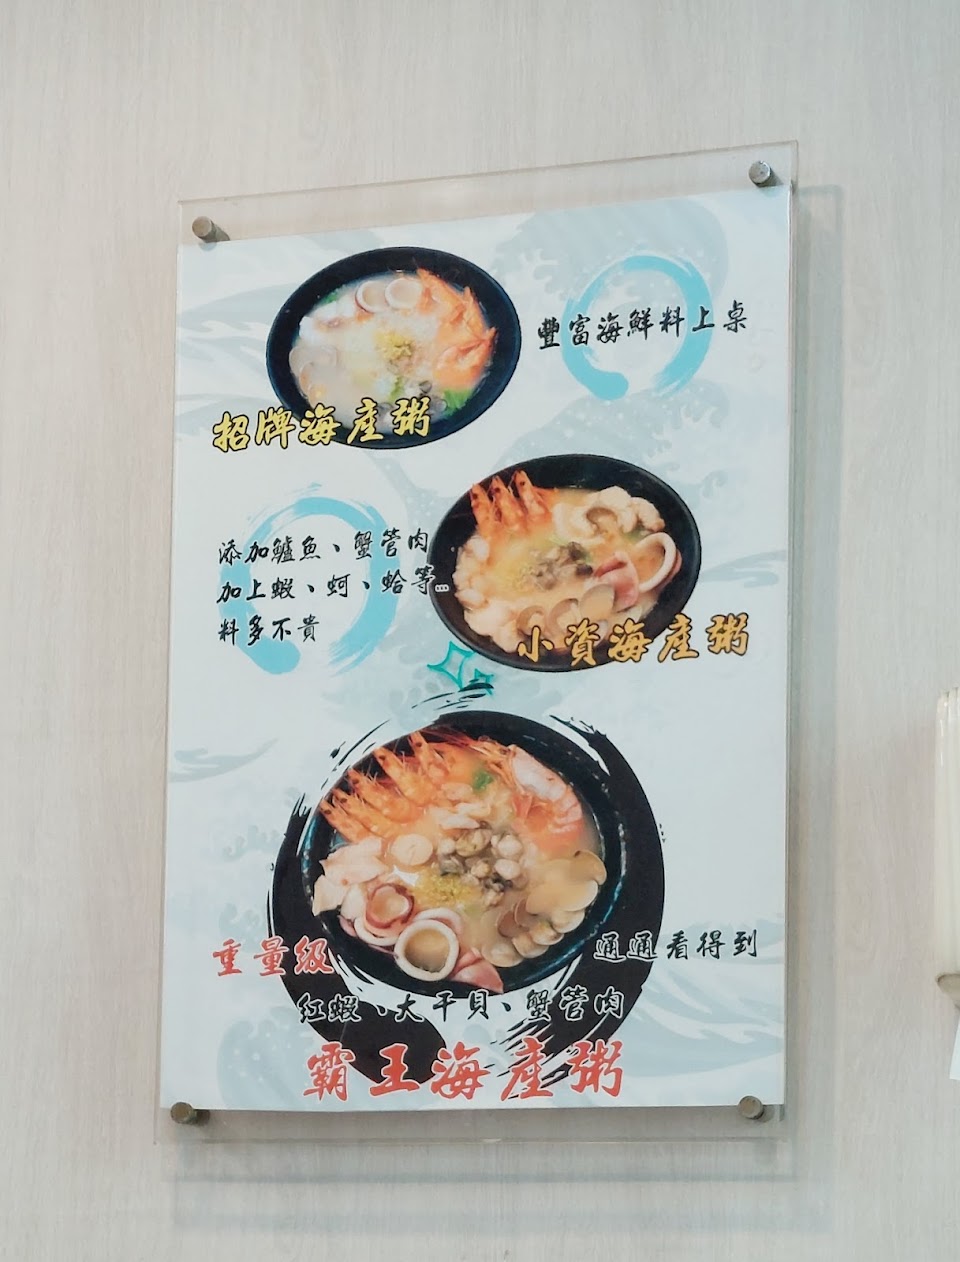 豐富海鮮料上桌
招牌海產粥
添加鱸魚、蟹管肉
加上蝦、蚵、蛤等...
料多不貴
小資海產粥
重量級
通通看得到
紅蝦、大干貝、蟹管肉
霸王海產粥